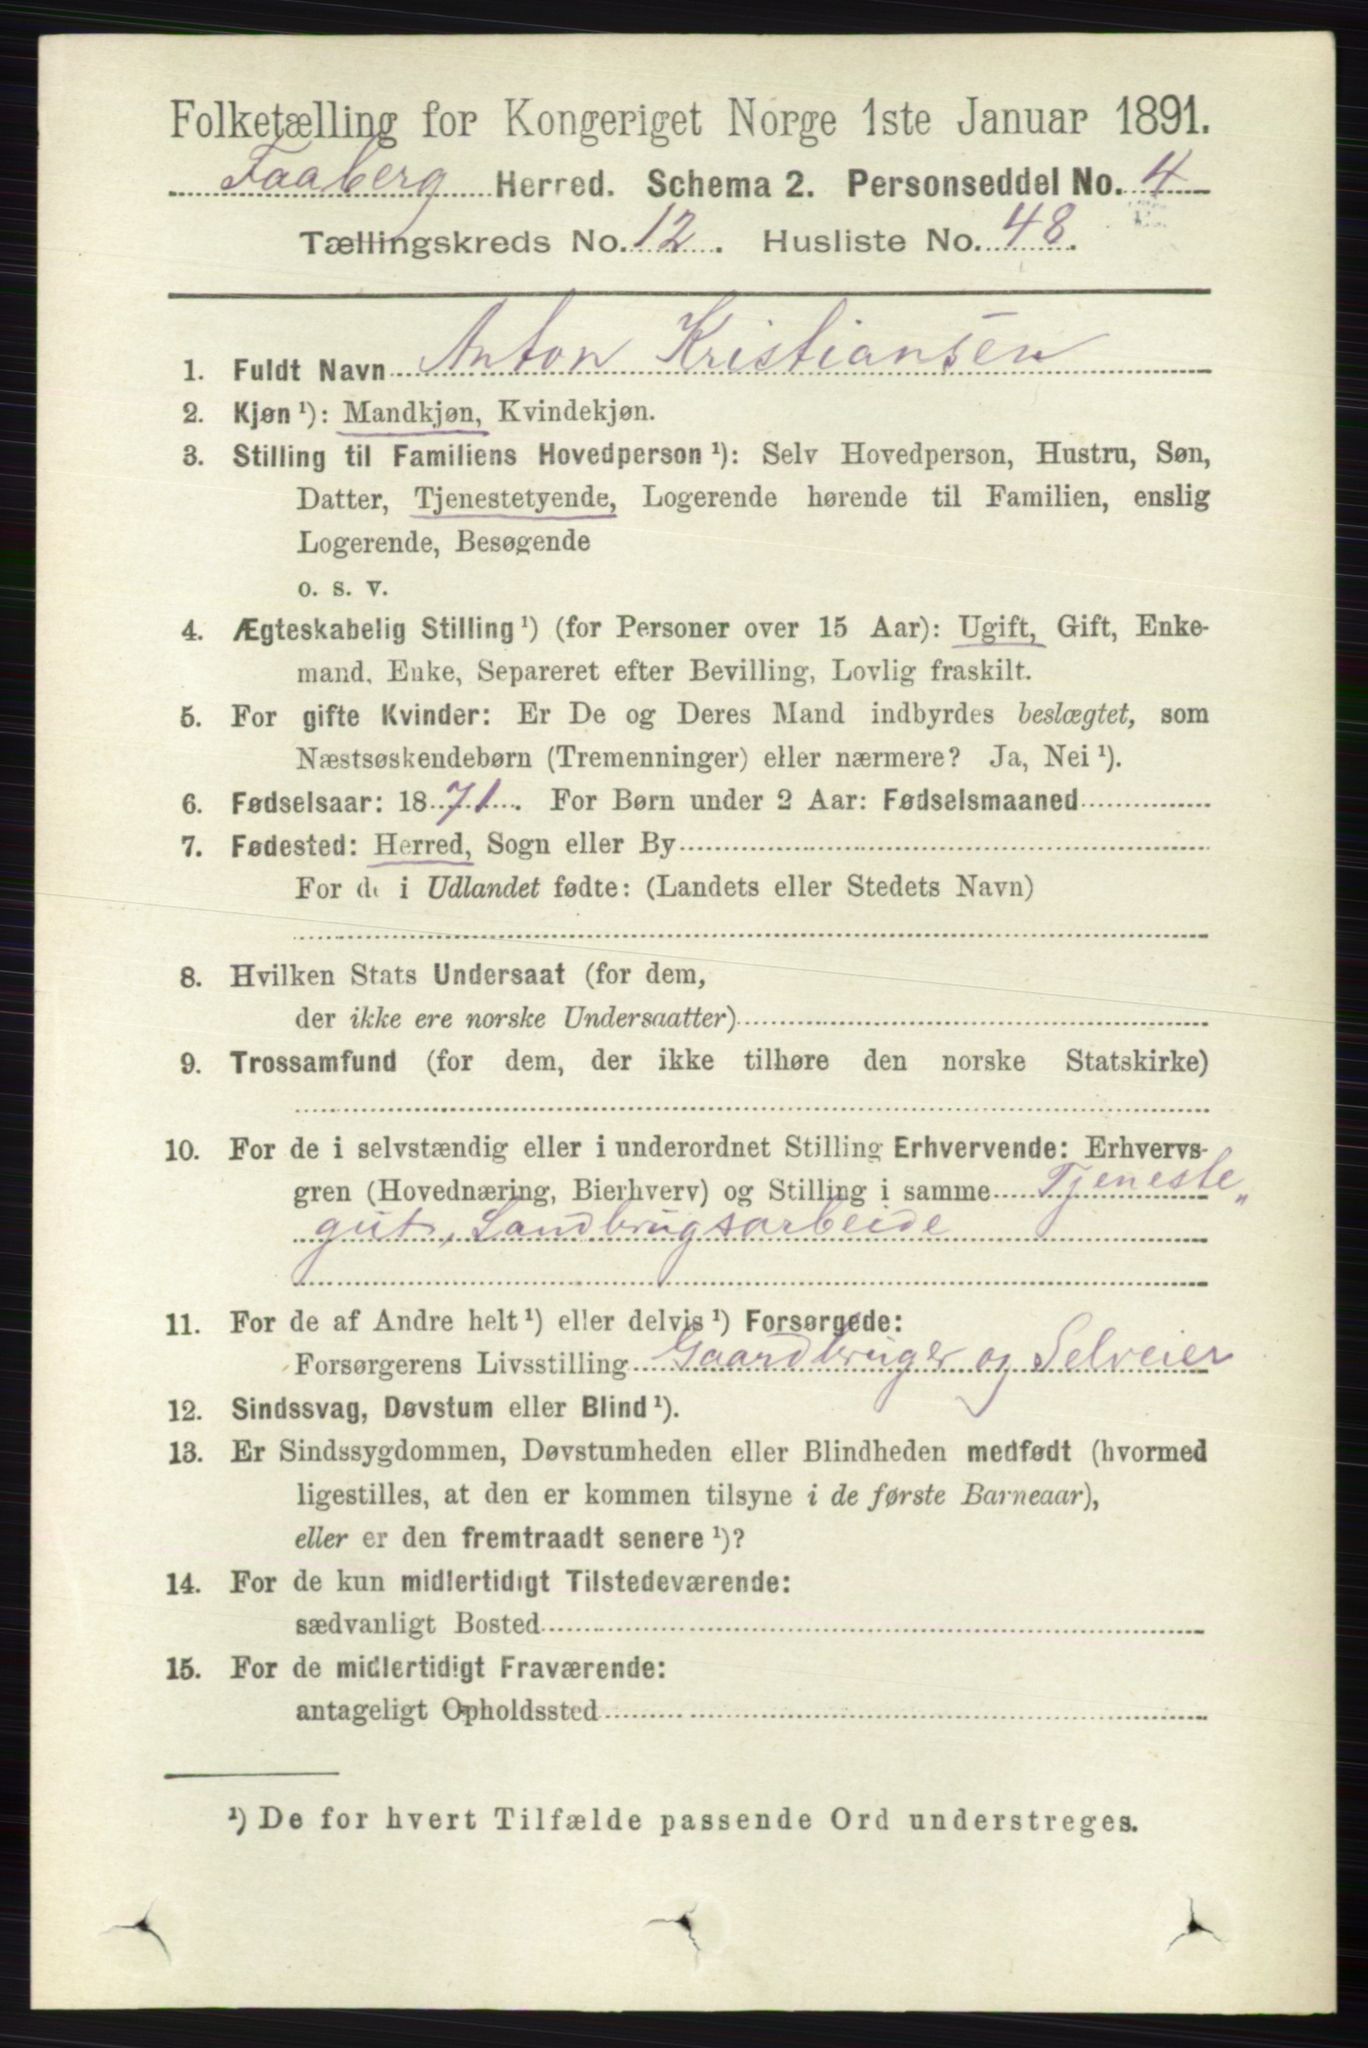 Folketælling for Kongeriget Norge 1ste Januar 1891.
Faaberg Herred. Schema 2. Personseddel No. 4
Tællingskreds No. 12. Husliste No. 48.
1. Fuldt Navn Anton Kristiansen
2. Kjøn ¹): Mandkjøn, Kvindekjøn.
3. Stilling til Familiens Hovedperson ¹): Selv Hovedperson, Hustru, Søn,
Datter, Tjenestetyende, Logerende hørende til Familien, enslig
Logerende, Besøgende
o. s. v.
4. Ægteskabelig Stilling ¹) (for Personer over 15 Aar): Ugift, Gift, Enke-
mand, Enke, Separeret efter Bevilling, Lovlig fraskilt.
5. For gifte Kvinder: Er De og Deres Mand indbyrdes beslægtet, som
Næstsøskendebørn (Tremenninger) eller nærmere? Ja, Nei ¹).
6. Fødselsaar: 1871. For Børn under 2 Aar: Fødselsmaaned
7. Fødested: Herred, Sogn eller By
For de i Udlandet fødte: (Landets eller Stedets Navn)
8. Hvilken Stats Undersaat (for dem,
der ikke ere norske Undersaatter)
9. Trossamfund (for dem, der ikke tilhøre den norske Statskirke)
10. For de i selvstændig eller i underordnet Stilling Erhvervende: Erhvervs-
gren (Hovednæring, Bierhverv) og Stilling i samme Tjeneste„
gut, Landbrugsarbeide
11. For de af Andre helt ¹) eller delvis ¹) Forsørgede:
Forsørgerens Livsstilling Gaardbruger og Selveier
12. Sindssvag, Døvstum eller Blind ¹).
13. Er Sindssygdommen, Døvstumheden eller Blindheden medfødt (hvormed
ligestilles, at den er kommen tilsyne i de første Barneaar),
eller er den fremtraadt senere ¹)?
14. For de kun midlertidigt Tilstedeværende:
sædvanligt Bosted
15. For de midlertidigt Fraværende:
antageligt Opholdssted
¹) De for hvert Tilfælde passende Ord understreges.